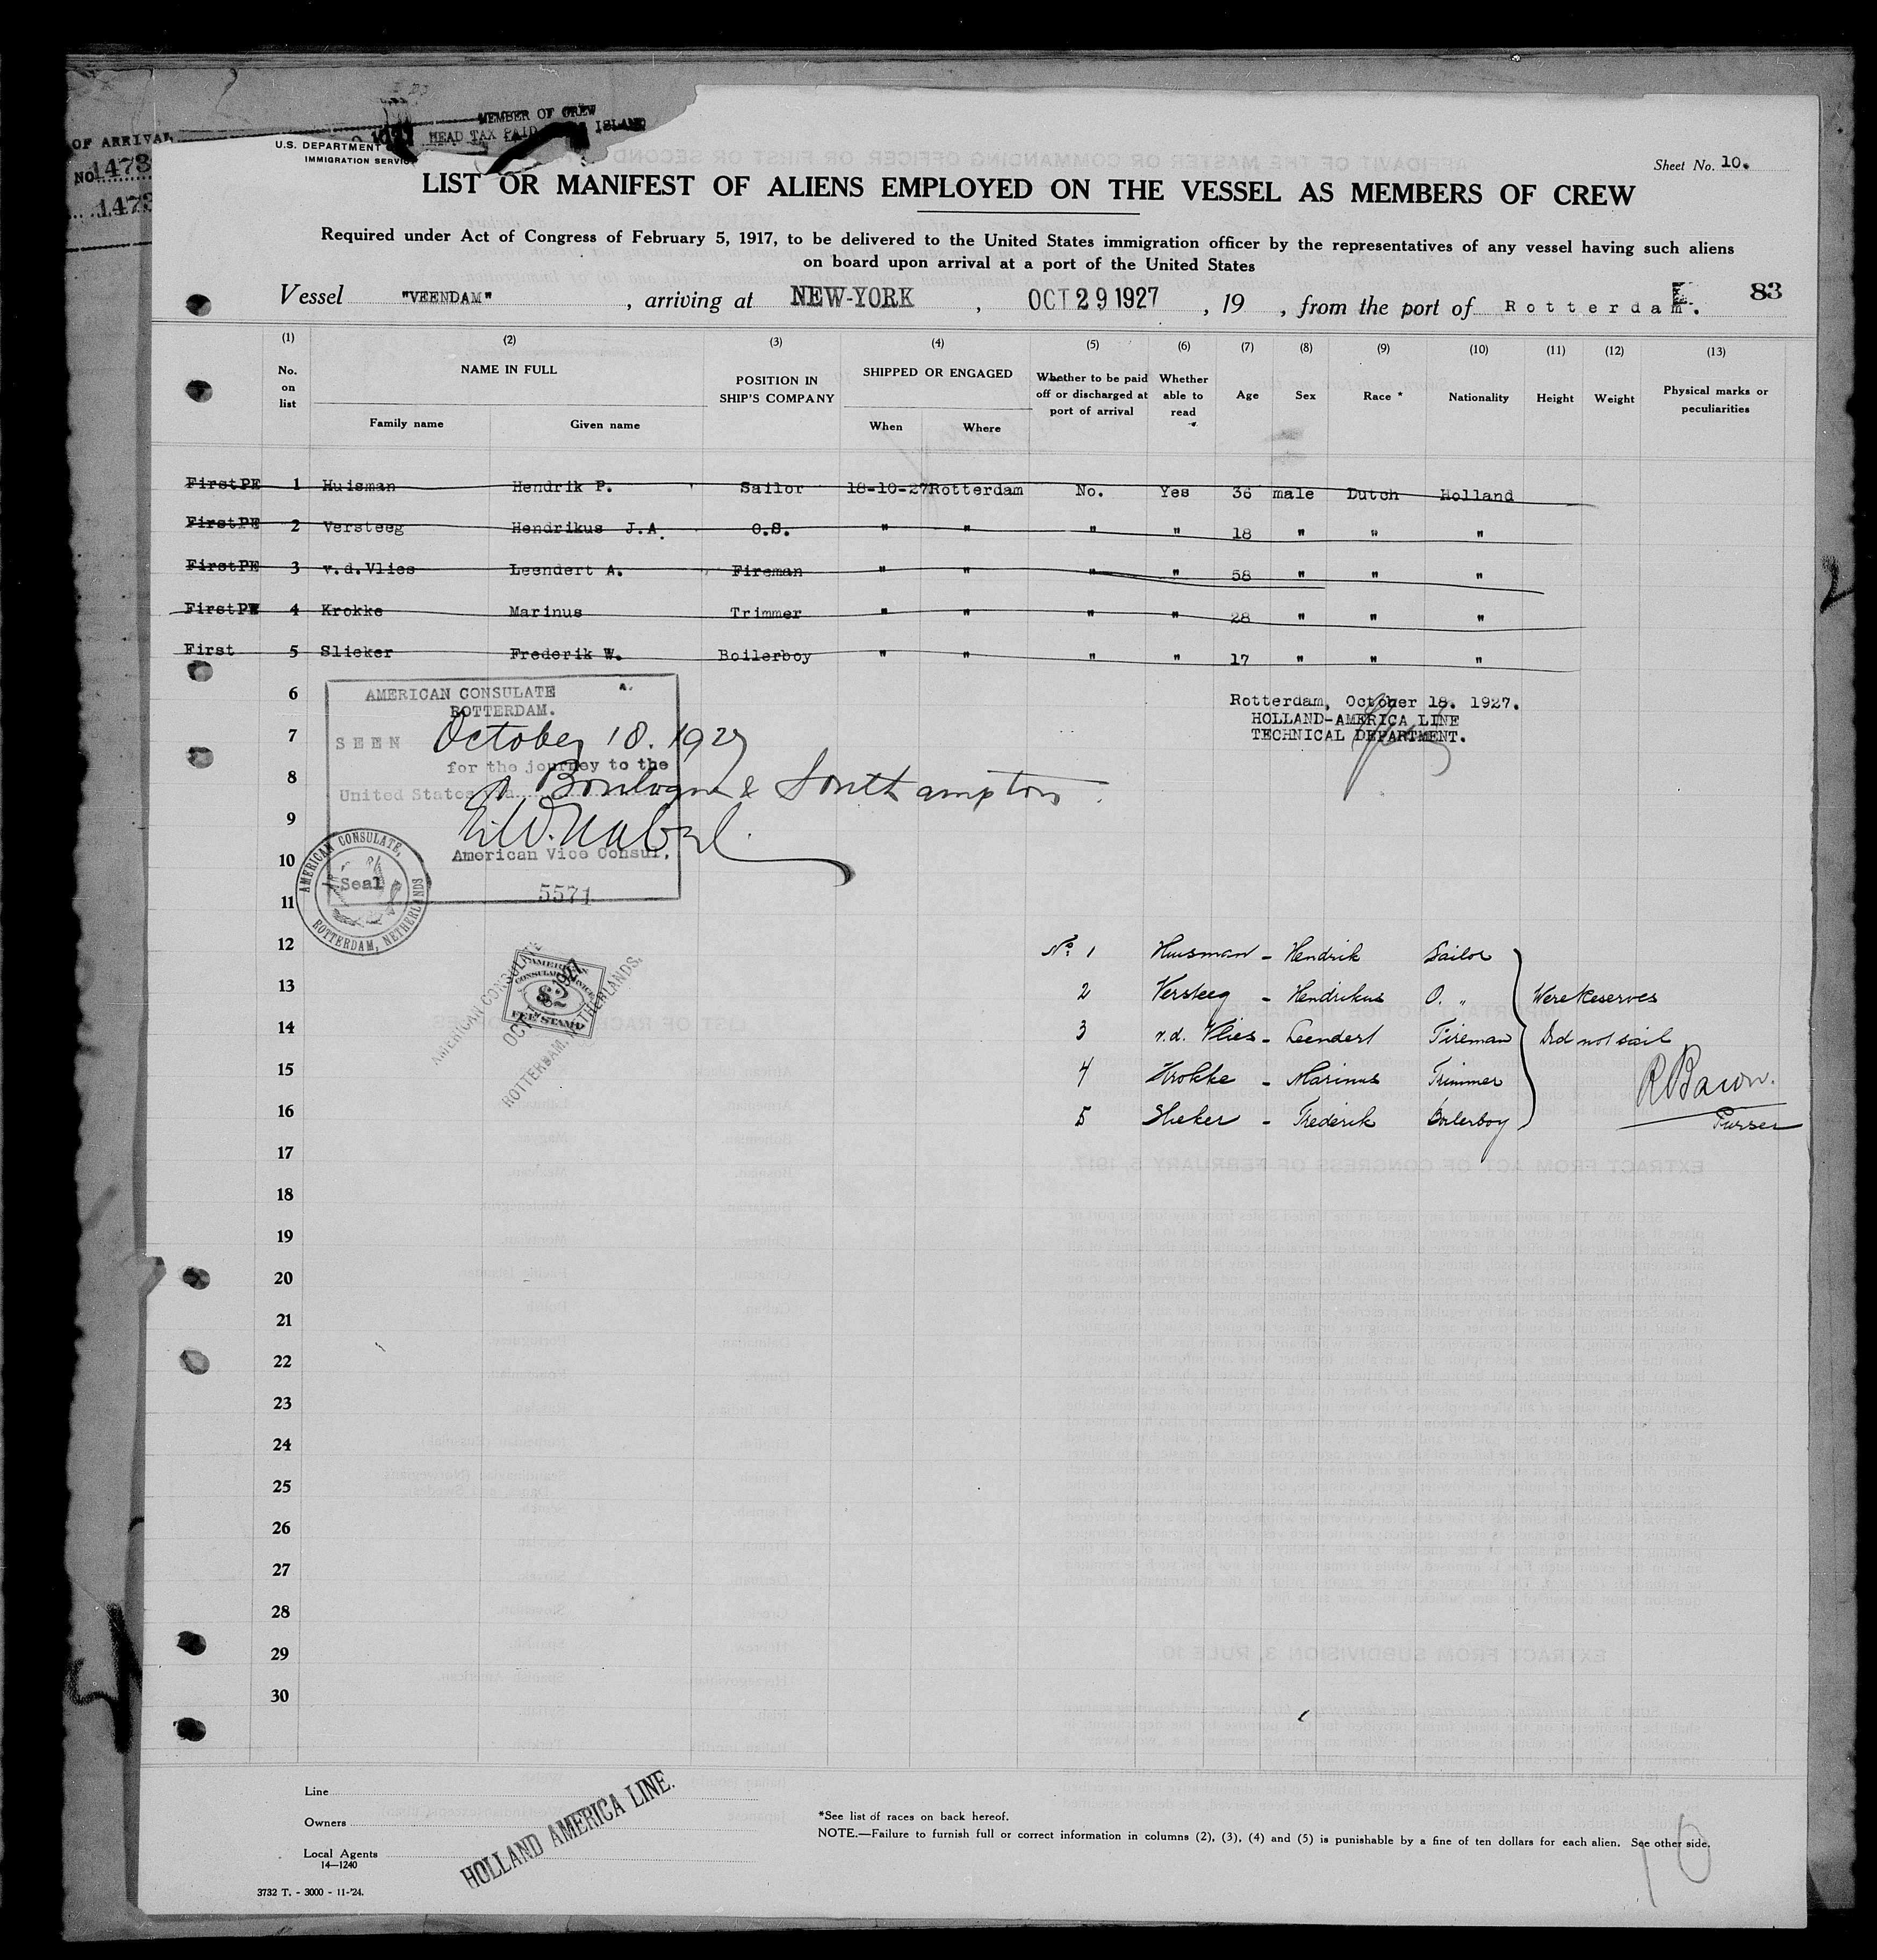 OF ARRIVAL
NO 1473
1473
MEMBER OF CREW
HEAD TAX PAID ISLAND
U.S. DEPARTMENT
IMMIGRATION SERVICE
Sheet No. 10.
LIST OR MANIFEST OF ALIENS EMPLOYED ON THE VESSEL AS MEMBERS OF CREW
Required under Act of Congress of February 5, 1917, to be delivered to the United States immigration officer by the representatives of any vessel having such aliens
on board upon arrival at a port of the United States
Vessel "VEENDAM" , arriving at NEW-YORK , OCT 29 1927 , 19 , from the port of Rotterdam. 83
(1) (2) (3) (4) (5) (6) (7) (8) (9) (10) (11) (12) (13)
No. on list NAME IN FULL Family name Given name POSITION IN SHIP'S COMPANY SHIPPED OR ENGAGED When Where Whether to be paid off or discharged at port of arrival Whether able to read Age Sex Race * Nationality Height Weight Physical marks or peculiarities
First PE 1 Huisman Hendrik P. Sailor 18-10-27 Rotterdam No. Yes 36 male Dutch Holland
First PE 2 Versteeg Hendrikus J.A. O.S. " " " " 18 " " "
First PE 3 v.d.Vlies Leendert A. Fireman " " " " 58 " " "
First PE 4 Krokke Marinus Trimmer " " " " 28 " " "
First 5 Slieker Frederik W. Boilerboy " " " " 17 " " "
6
7
8
9
10
11
AMERICAN CONSULATE
ROTTERDAM.
SEEN October 18. 1927
for the journey to the
United States via Boulogne & Southampton.
American Vice Consul.
Seal
5571
AMERICAN CONSULATE, ROTTERDAM, NETHERLANDS
Rotterdam, October 18. 1927.
HOLLAND-AMERICA LINE
TECHNICAL DEPARTMENT.
AMERICAN CONSULATE
OCT 18 1927
ROTTERDAM, NETHERLANDS.
AMERICAN
CONSULAR SERVICE
$2
FEE STAMP
12 No. 1 Huisman - Hendrik Sailor
13 2 Versteeg - Hendrikus O. " Were Reserves
14 3 v.d. Vlies - Leendert Fireman Did not sail
15 4 Krokke - Marinus Trimmer RBacon.
16 5 Slieker - Frederik Boilerboy Purser
17
18
19
20
21
22
23
24
25
26
27
28
29
30
Line
Owners
Local Agents
14—1240
HOLLAND AMERICA LINE.
3732 T. - 3000 - 11-'24.
*See list of races on back hereof.
NOTE.—Failure to furnish full or correct information in columns (2), (3), (4) and (5) is punishable by a fine of ten dollars for each alien. See other side.
10